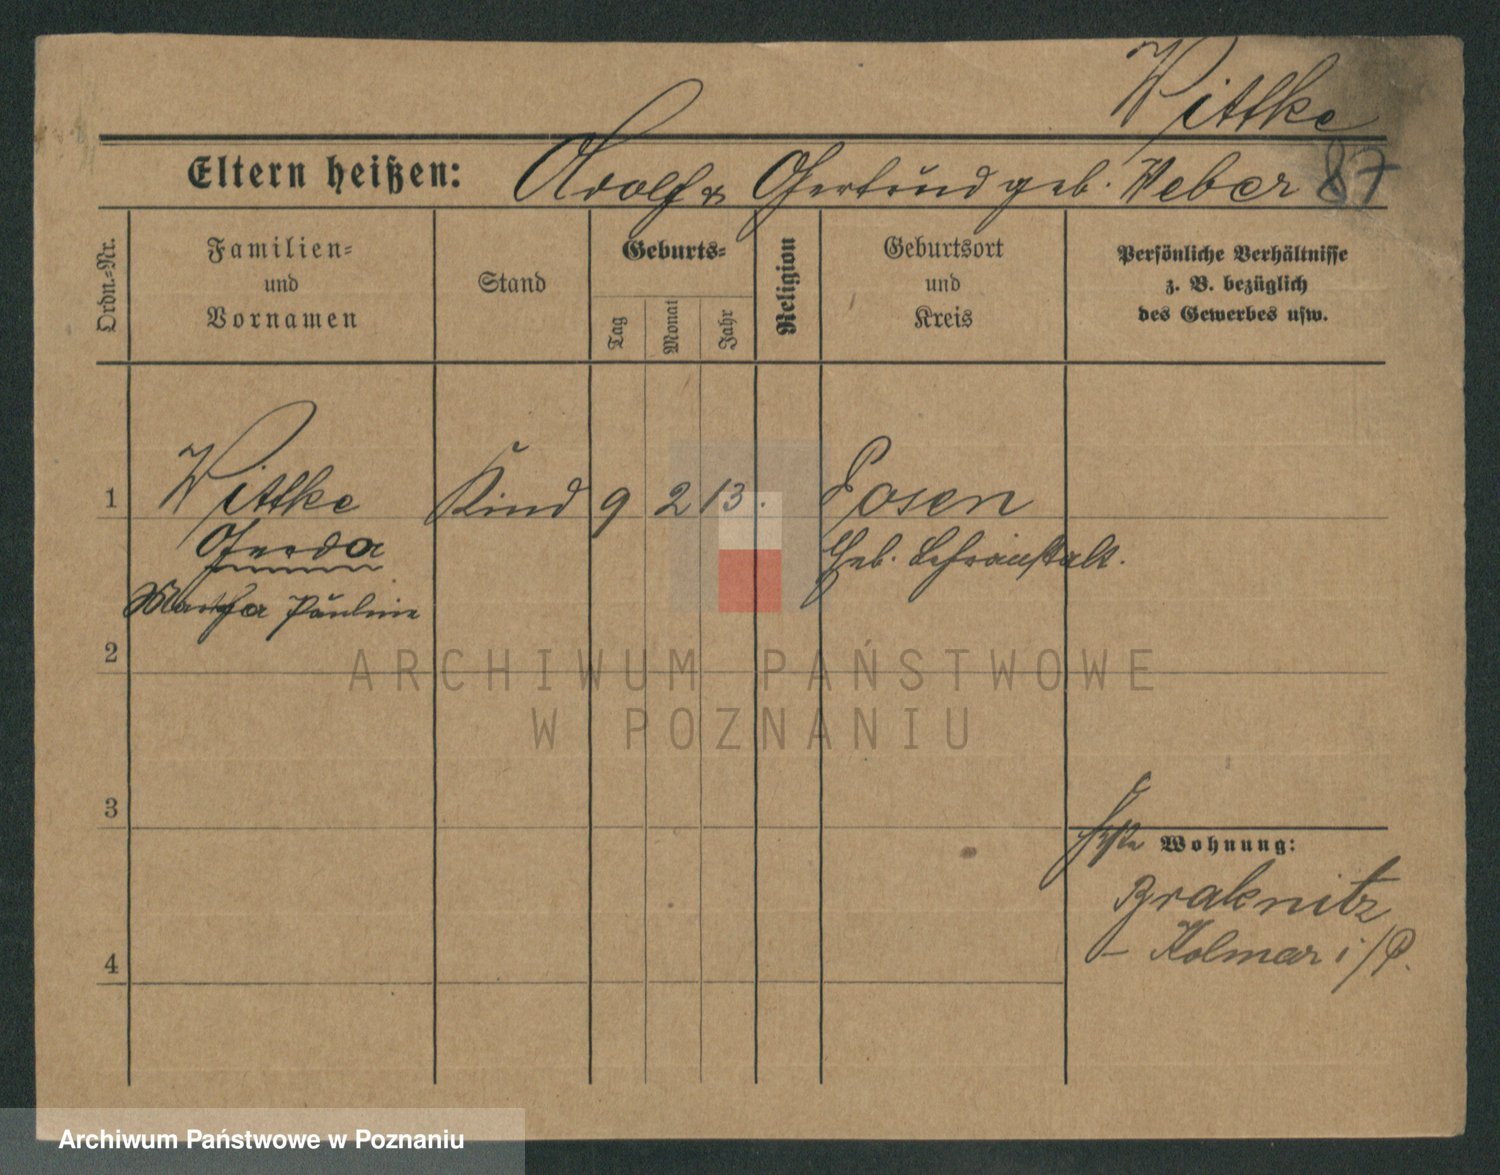 Wittke
Eltern heißen: Adolf & Gertrud geb. Weber 87
Ordn.=Nr.
Familien=
und
Vornamen
Stand
Geburts=
Tag
Monat
Jahr
Religion
Geburtsort
und
Kreis
Persönliche Verhältnisse
z. B. bezüglich
des Gewerbes usw.
1 Wittke Kind 9 2 13. Posen
Gerda Heb. Lehranstalt.
Martha Pauline
2
3
Wohnung:
Braknitz
- Kolmar i/P.
4
ARCHIWUM PAŃSTWOWE
W POZNANIU
Archiwum Państwowe w Poznaniu